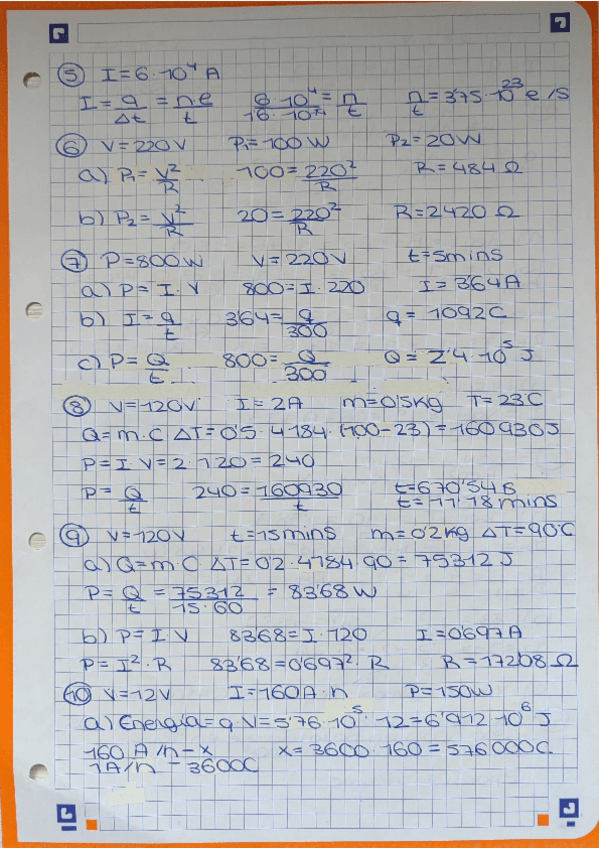 ⑤ I=6·10⁴A
I=q/Δt=n·e/t 6·10⁴/1'6·10⁻¹⁹=n/t n/t=3'75·10²³e/s
⑥ V=220V P₁=100W P₂=20W
a) P₁=V²/R 100=220²/R R=484Ω
b) P₂=V²/R 20=220²/R R=2420Ω
⑦ P=800W V=220V t=5mins
a) P=I·V 800=I·220 I=3'64A
b) I=q/t 3'64=q/300 q=1092C
c) P=Q/t 800=Q/300 Q=2'4·10⁵J
⑧ V=120V I=2A m=0'5Kg T=23C
Q=m·C·ΔT=0'5·4184·(100-23)=160930J
P=I·V=2·120=240
P=Q/t 240=160930/t t=670'54s
t=11'18mins
⑨ V=120V t=15mins m=0'2Kg ΔT=90ºC
a) Q=m·C·ΔT=0'2·4184·90=75312J
P=Q/t=75312/15·60=83'68W
b) P=I·V 83'68=I·120 I=0'697A
P=I²·R 83'68=0'697²·R R=172'08Ω
⑩ V=12V I=160A·h P=150W
a) Energía=q·V=5'76·10⁵·12=6'912·10⁶J
160A/h-x x=3600·160=576000C
1A/h-3600C